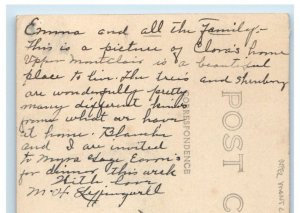 Emma and all the Family:-
This is a picture of Clora's home
Upper Montclair is a beautiful
place to live. The trees and shrubery
are wonderfully pretty
many different kinds
from what we have
at home. Blanche
and I are invited
to Myra
for dinner this week
With Love
M. H. Leffingwell
POST C
RESPONDENCE